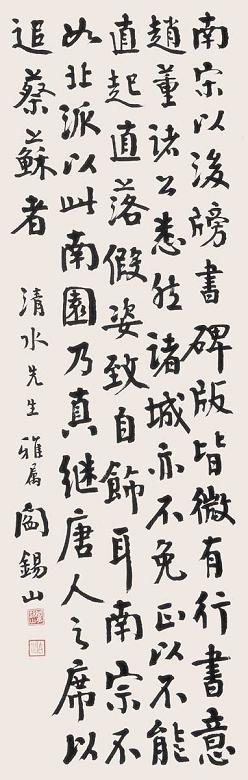 南宋以後牓書碑版皆微有行書意
趙董諸公悉然諸城亦不免正以不能
直起直落假姿致自飾耳南宗不
如北派以此南園乃真繼唐人之席以
追蔡蘇者
清水先生雅属 閻錫山